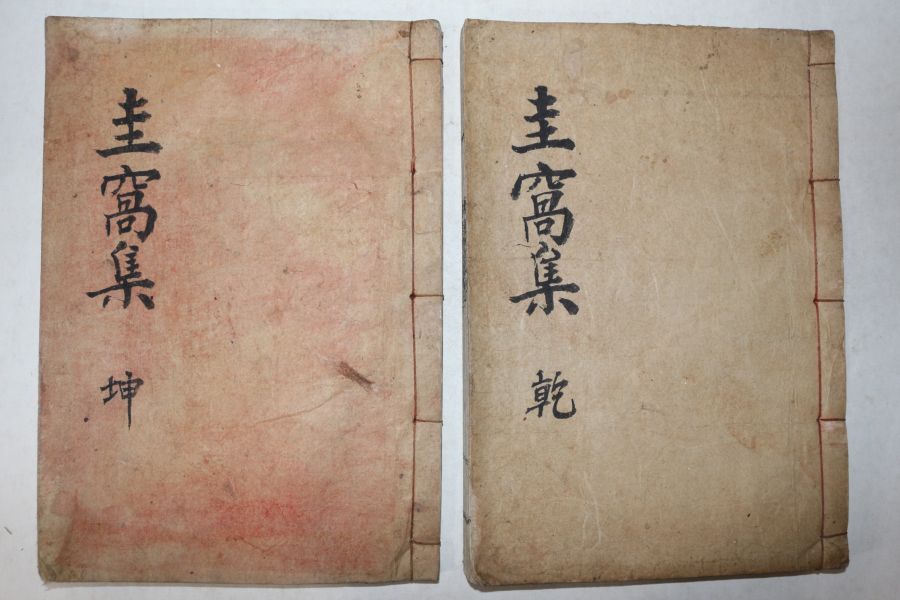 圭窩集
乾
圭窩集
坤